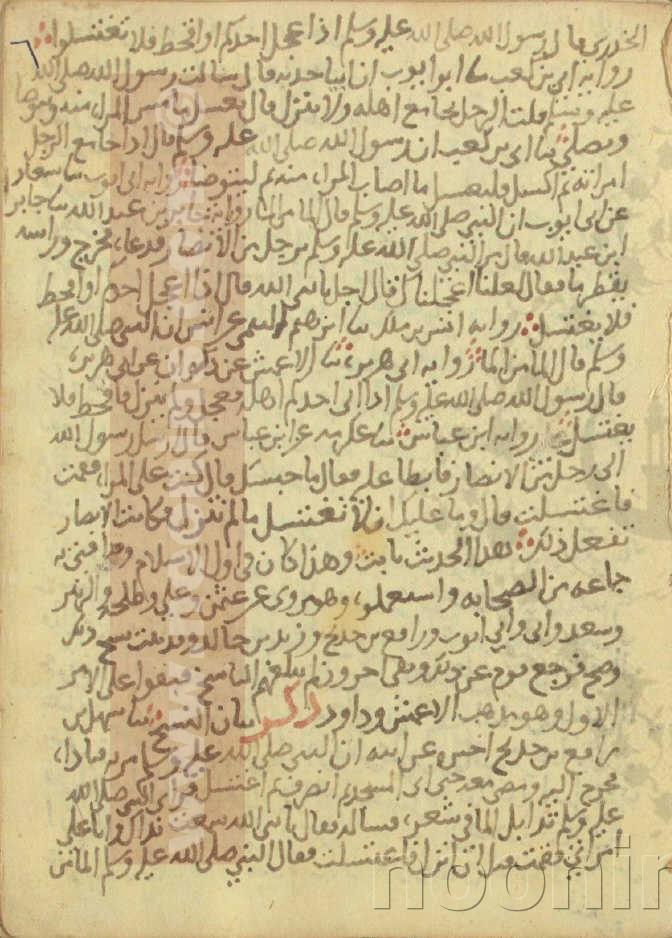 الخدري قال رسول الله صلى الله عليه وسلم اذا اعجل احدكم او اقحط فلا تغتسلوا
رواية ابي بن كعب ثنا ابو ايوب ان ابيا حدثه قال سالت رسول الله صلى الله
عليه وسلم قلت الرجل يجامع اهله ولا ينزل قال يغسل ما مس المراة منه ويتوضا
ويصلي ثنا ابي بن كعب ان رسول الله صلى الله عليه وسلم قال اذا جامع الرجل
امراته ثم اكسل فليغسل ما اصاب المراة منه ثم ليتوضا رواية ابي ايوب ثنا سعاد
عن ابي ايوب ان النبي صلى الله عليه وسلم قال الما من الما رواية جابر بن عبد الله ثنا جابر
ابن عبد الله قال مر النبي صلى الله عليه وسلم برجل من الانصار فدعاه فخرج وراسه
يقطر ما فقال لعلنا اعجلناك قال اجل يا نبي الله قال اذا اعجل احدكم او اقحط
فلا يغتسل رواية انس بن ملك ثنا ابرهيم التيمي عن انس ان النبي صلى الله عليه
وسلم قال الما من الما رواية ابي هريرة ثنا الاعمش عن ذكوان عن ابي هريرة
قال رسول الله صلى الله عليه وسلم اذا اتى احدكم اهله فعجل ولم ينزل فاقحط فلا
يغتسل رواية ابن عباس ثنا عكرمه عن ابن عباس قال ارسل رسول الله
الى رجل من الانصار فابطا عليه فقال ما حبسك قال كنت على المراة فقمت
فاغتسلت قال وما عليك ان لا تغتسل ما لم تنزل فكانت الانصار
تفعل ذلك هذا الحديث ثابت وهذا كان في اول الاسلام وقد افتى به
جماعه من الصحابه واستعملوه وهو مروي عن عثمن وعلي وطلحه والزبير
وسعد وابي وابي ايوب ورافع بن خديج وزيد بن خالد وقد ثبت نسخ ذلك
وصح فرجع قوم عن ذلك وبقي اخرون لم يبلغهم الناسخ فبقوا على الامر
الاول وهو مذهب الاعمش وداود ذكر بيان النسخ ثنا سهل بن
رافع بن خديج اخبره عن ابيه ان النبي صلى الله عليه وسلم مر به فناداه
فخرج اليه ومضى معه حتى اتى المسجد ثم انصرف ثم اغتسل فراى النبي صلى الله
عليه وسلم قد ابل الما في شعره فساله فقال يا نبي الله سمعت نداك وانا على
امراتي فقمت قبل ان انزل فاغتسلت فقال النبي صلى الله عليه وسلم الما من
noonin